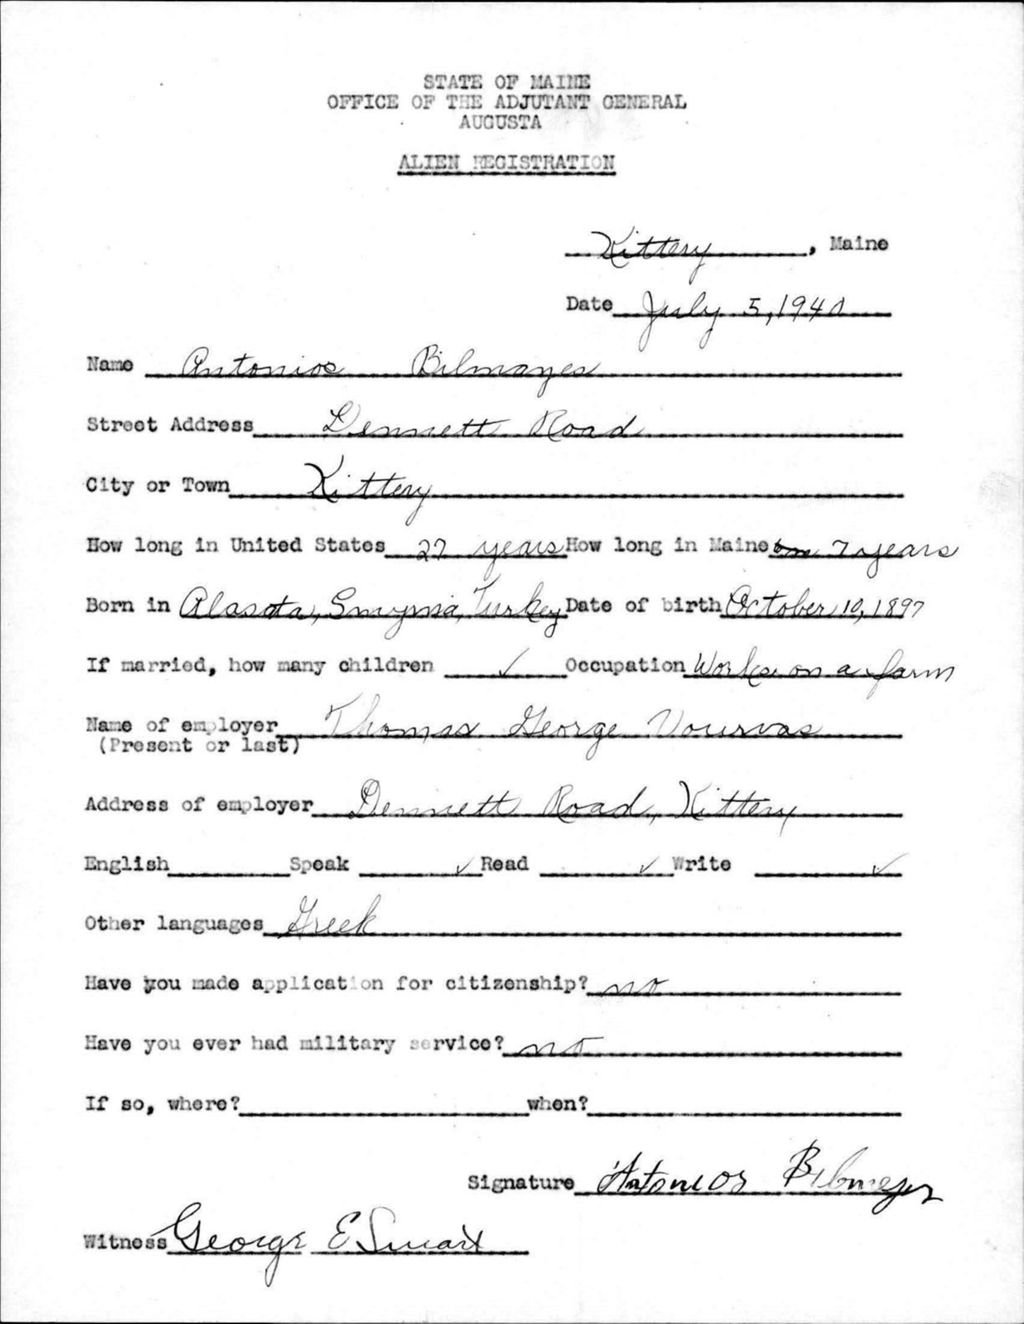 STATE OF MAINE
OFFICE OF THE ADJUTANT GENERAL
AUGUSTA
ALIEN REGISTRATION
Kittery, Maine
Date July 5, 1940
Name Antonios Bilmayes
Street Address Dennett Road
City or Town Kittery
How long in United States 27 years How long in Maine 7 years
Born in Alasata, Smyrnia, Turkey Date of birth October 10, 1897
If married, how many children ✓ Occupation Works on a farm
Name of employer Thomas George Vourvas
(Present or last)
Address of employer Dennett Road, Kittery
English Speak ✓ Read ✓ Write ✓
Other languages Greek
Have you made application for citizenship? no
Have you ever had military service? no
If so, where? when?
Signature Antonios
Witness George E Smart